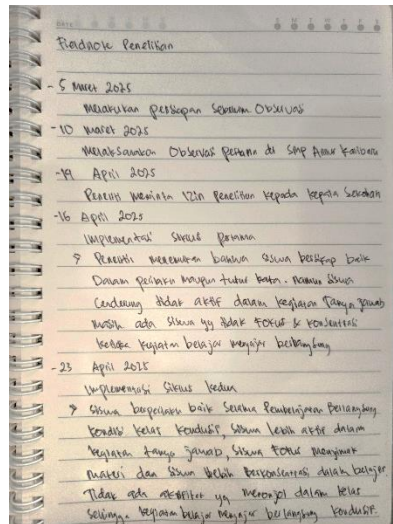 Fieldnote Penelitian
- 5 Maret 2025
Melakukan persiapan sebelum Observasi
- 10 Maret 2025
Melaksanakan Observasi pertama di SMP
- April 2025
Peneliti meminta izin penelitian kepada kepala sekolah
- 16 April 2025
Implementasi siklus pertama
Peneliti menemukan bahwa siswa bersikap baik
Dalam perilaku maupun tutur kata. Namun siswa
Cenderung tidak aktif dalam kegiatan Tanya jawab
masih ada siswa yg tidak fokus & konsentrasi
ketika kegiatan belajar mengajar berlangsung
- 23 April 2025
Implementasi siklus kedua
siswa berperilaku baik selama Pembelajaran Berlangsung
kondisi kelas kondusif, siswa lebih aktif dalam
kegiatan tanya jawab, siswa fokus menyimak
materi dan siswa lebih berkonsentrasi dalam belajar.
Tidak ada yg menonjol dalam kelas
sehingga kegiatan belajar mengajar berlangsung kondusif.